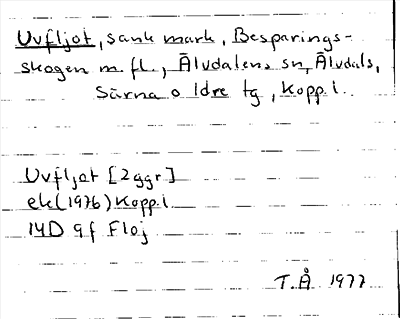 Uvfljot, sank mark, Besparings-
skogen m.fl., Älvdalens sn, Älvdals,
Särna o Idre tg, Kopp.l.
Uvfljot [2ggr]
ek(1976)Kopp.l.
14D 9f Floj
T.Å 1977